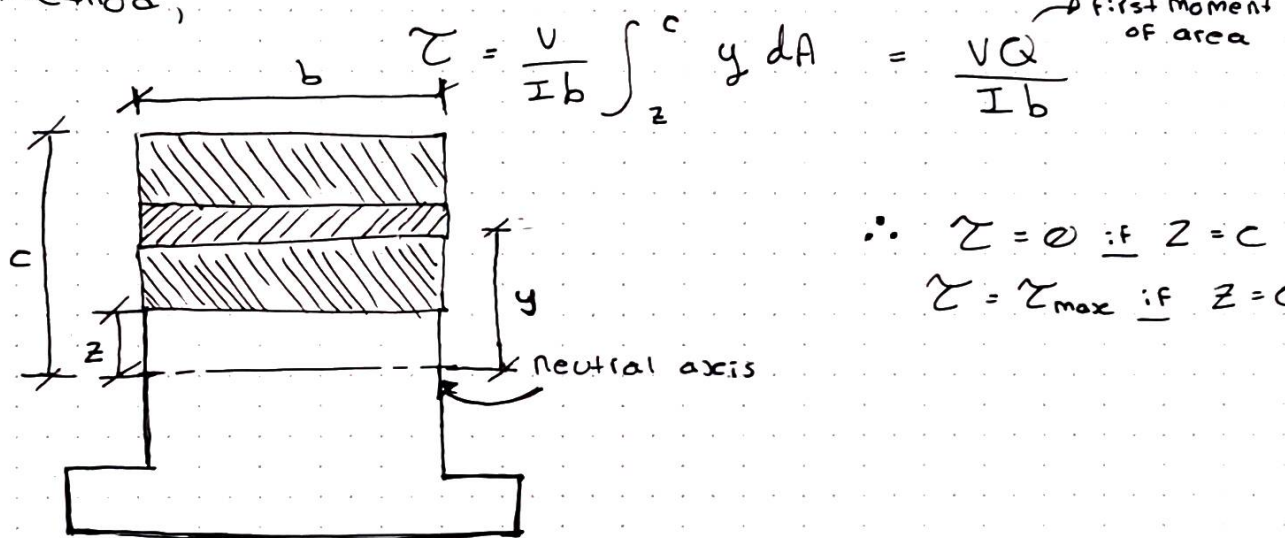 τ = V/(Ib) ∫_z^c y dA = VQ/(Ib)
first moment
of area
b
c
z
y
neutrial axis
∴ τ = 0 if z = c
τ = τmax if z =